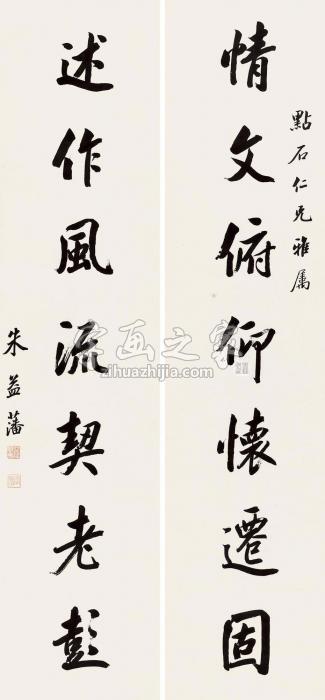 點石仁兄雅属
情文俯仰懷遷固
述作風流契老彭
朱益藩
字画之家
zihuazhijia.com